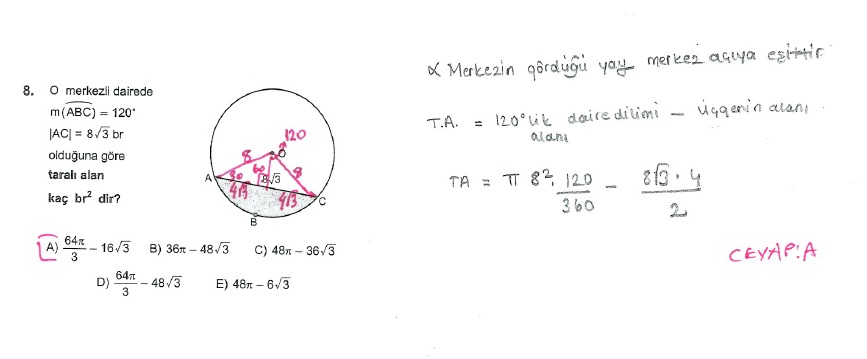 8. O merkezli dairede
m(ABC) = 120°
|AC| = 8√3 br
olduğuna göre
taralı alan
kaç br² dir?
120
8
O
60
8
A
30
8√3
4√3
4√3
C
B
A) 64π/3 − 16√3 B) 36π − 48√3 C) 48π − 36√3
D) 64π/3 − 48√3 E) 48π − 6√3
∝ Merkezin gördüğü yay merkez açıya eşittir
T.A. = 120°lik daire dilimi − Üçgenin alanı
alanı
TA = π 8². 120/360 − 8√3 · 4/2
CEVAP:A